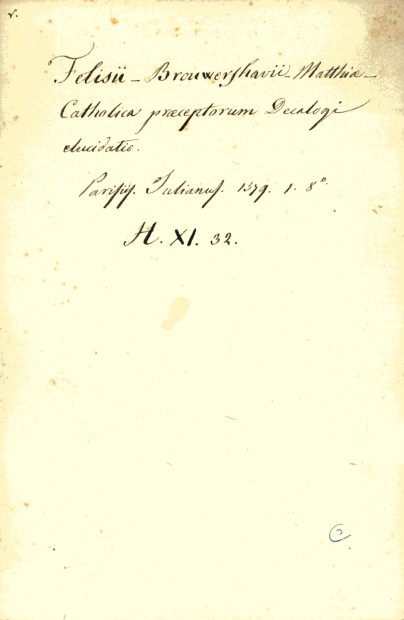 v.
Felisii - Brouwershavii - Matthiæ -
Catholica præceptorum Decalogi
elucidatio.
Parisÿs. Julianus. 1579. 1. 8°.
H. XI. 32.